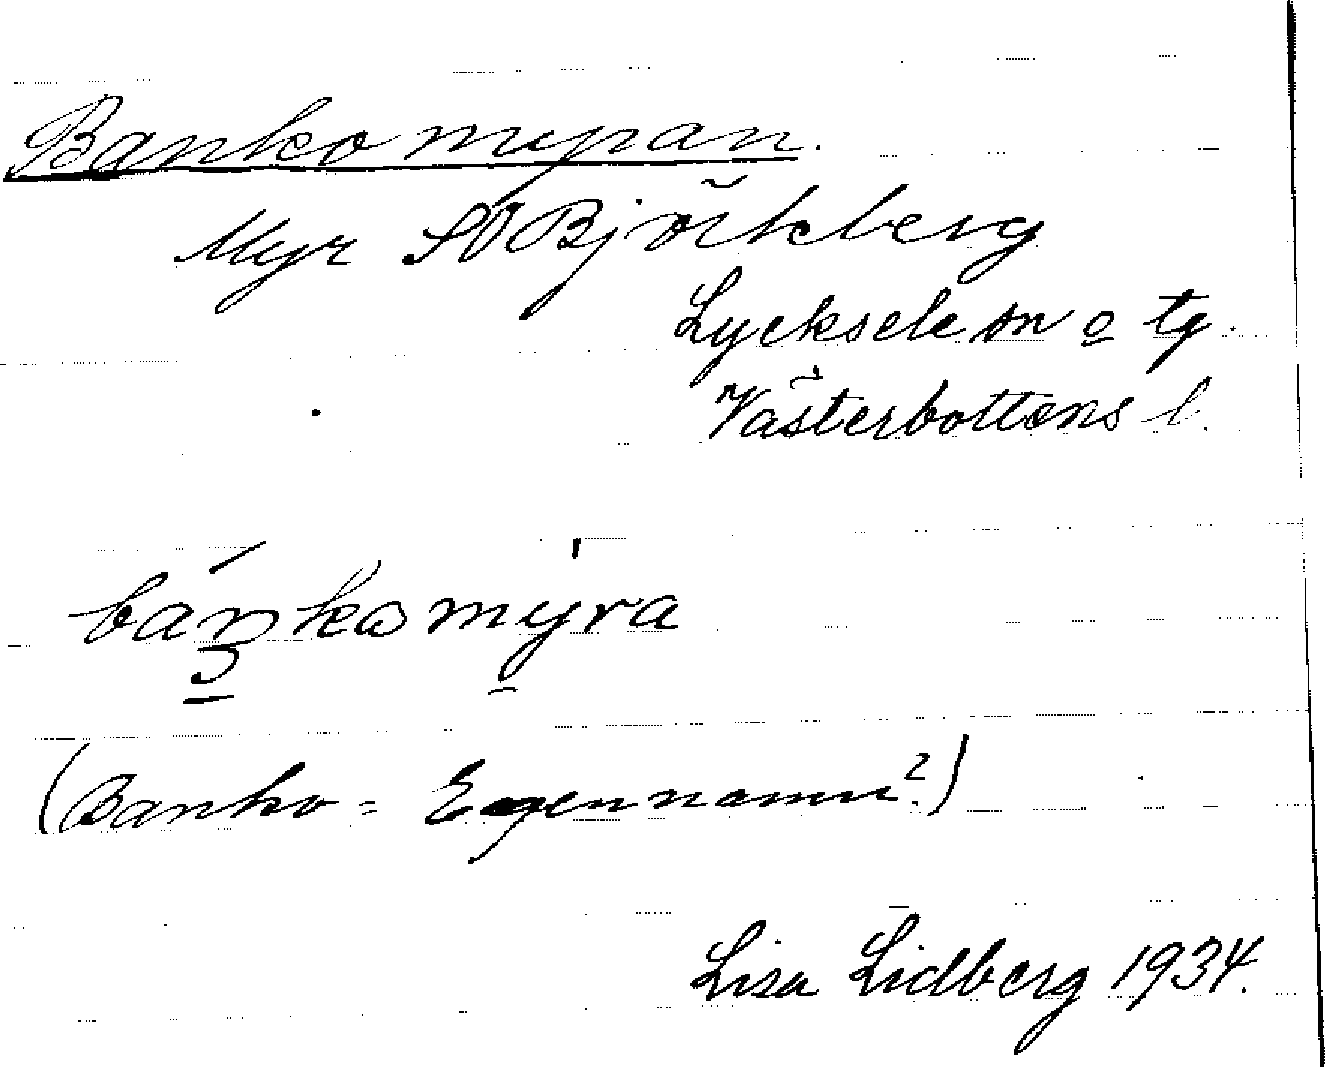 Bankomyran.
Myr SV Björkberg
Lycksele sn o tg.
Västerbottens l.
bánkomýra
(Banko = Egennamn?)
Lisa Lidberg 1934.